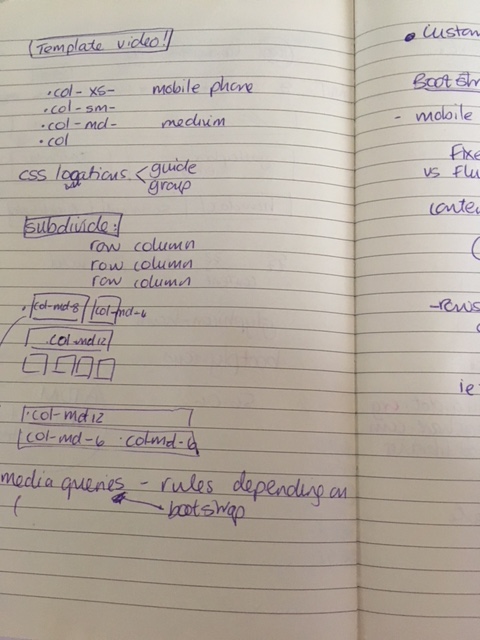 Template video!
.col-xs- mobile phone
.col-sm-
.col-md- medium
.col
css locations < guide
group
subdivide:
row column
row column
row column
.col-md-8 col-md-6
.col-md12
.col-md12
col-md-6 .colmd-6
media queries - rules depending on
bootstrap
• Custom
Bootstr
- mobile
Fixe
vs Flu
conte
-rows
ie